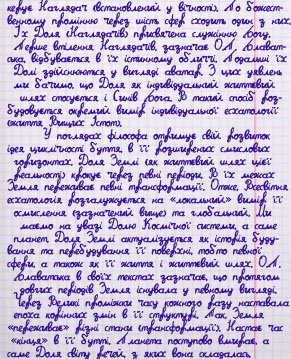 керує Наглядач (встановлений у вічності). По божест-
венному промінню через шість сфер сходить один з них.
Їх Доля Наглядачів) присвячена служінню Богу.
Перше втілення Наглядачів, зазначає О.П. Блават-
ська, відбувається в їх істинному обличчі. Подальші їх
Долі здійснюються у вигляді аватар. З цих уявлень
ми бачимо, що Доля як індивідуальний життєвий
шлях стосується і Синів Бога. В такий спосіб роз-
будовується окремий вимір індивідуальної есхатології
(життя Вищих Істот).
У поглядах філософа отримує свій розвиток
ідея циклічності буття, в її розширених смислових
горизонтах. Доля Землі (як життєвий шлях цієї
реальності) крокує через певні періоди. В їх межах
Земля переживає певні трансформації. Отже, Всесвітня
есхатологія розгалужується на «локальний» вимір її
осмислення (зазначений вище) та глобальний. Ми
маємо на увазі Долю Космічної системи, а саме
планет. Доля Землі актуалізується як історія буду-
вання та перебудування її поверхні, тобто певної
сфери, а також як її життя і життєвий шлях. О.П.
Блаватська в своїх текстах зазначає, що протягом
довгих періодів Земля існувала у певному вигляді.
Через Великі проміжки часу кожного разу наставала
епоха корінних змін в її структурі. Так, Земля
«переживає» різні стани (трансформації). Настає час
«кінця» в її бутті. Планета поступово вмирає, а
саме Доля світу речей, з яких вона складалась,